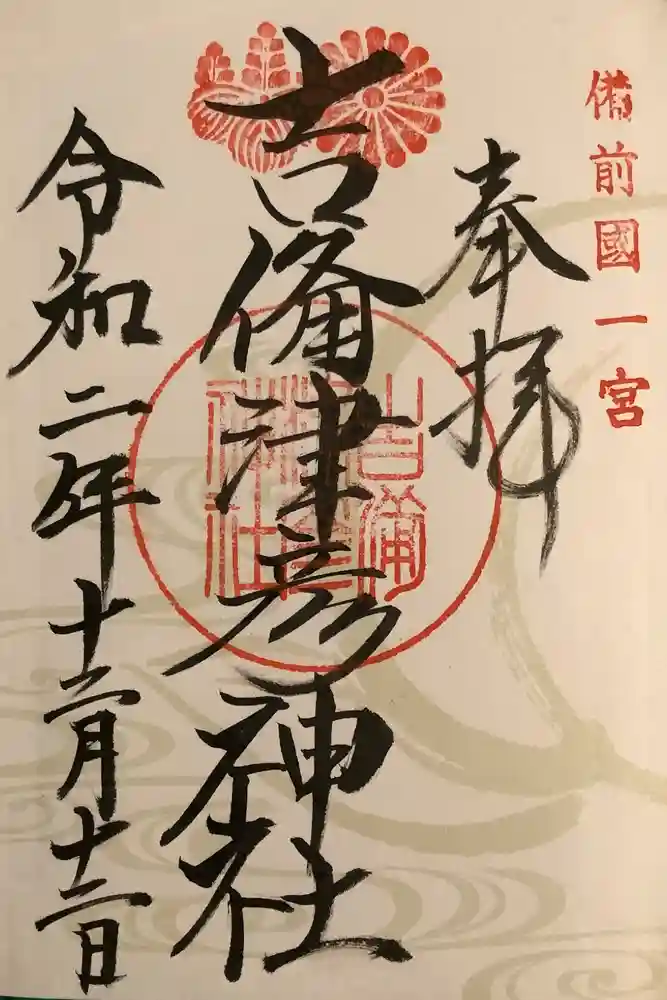 備前國一宮
奉拝
吉備津彦神社
吉備
神社
令和二年十二月十二日